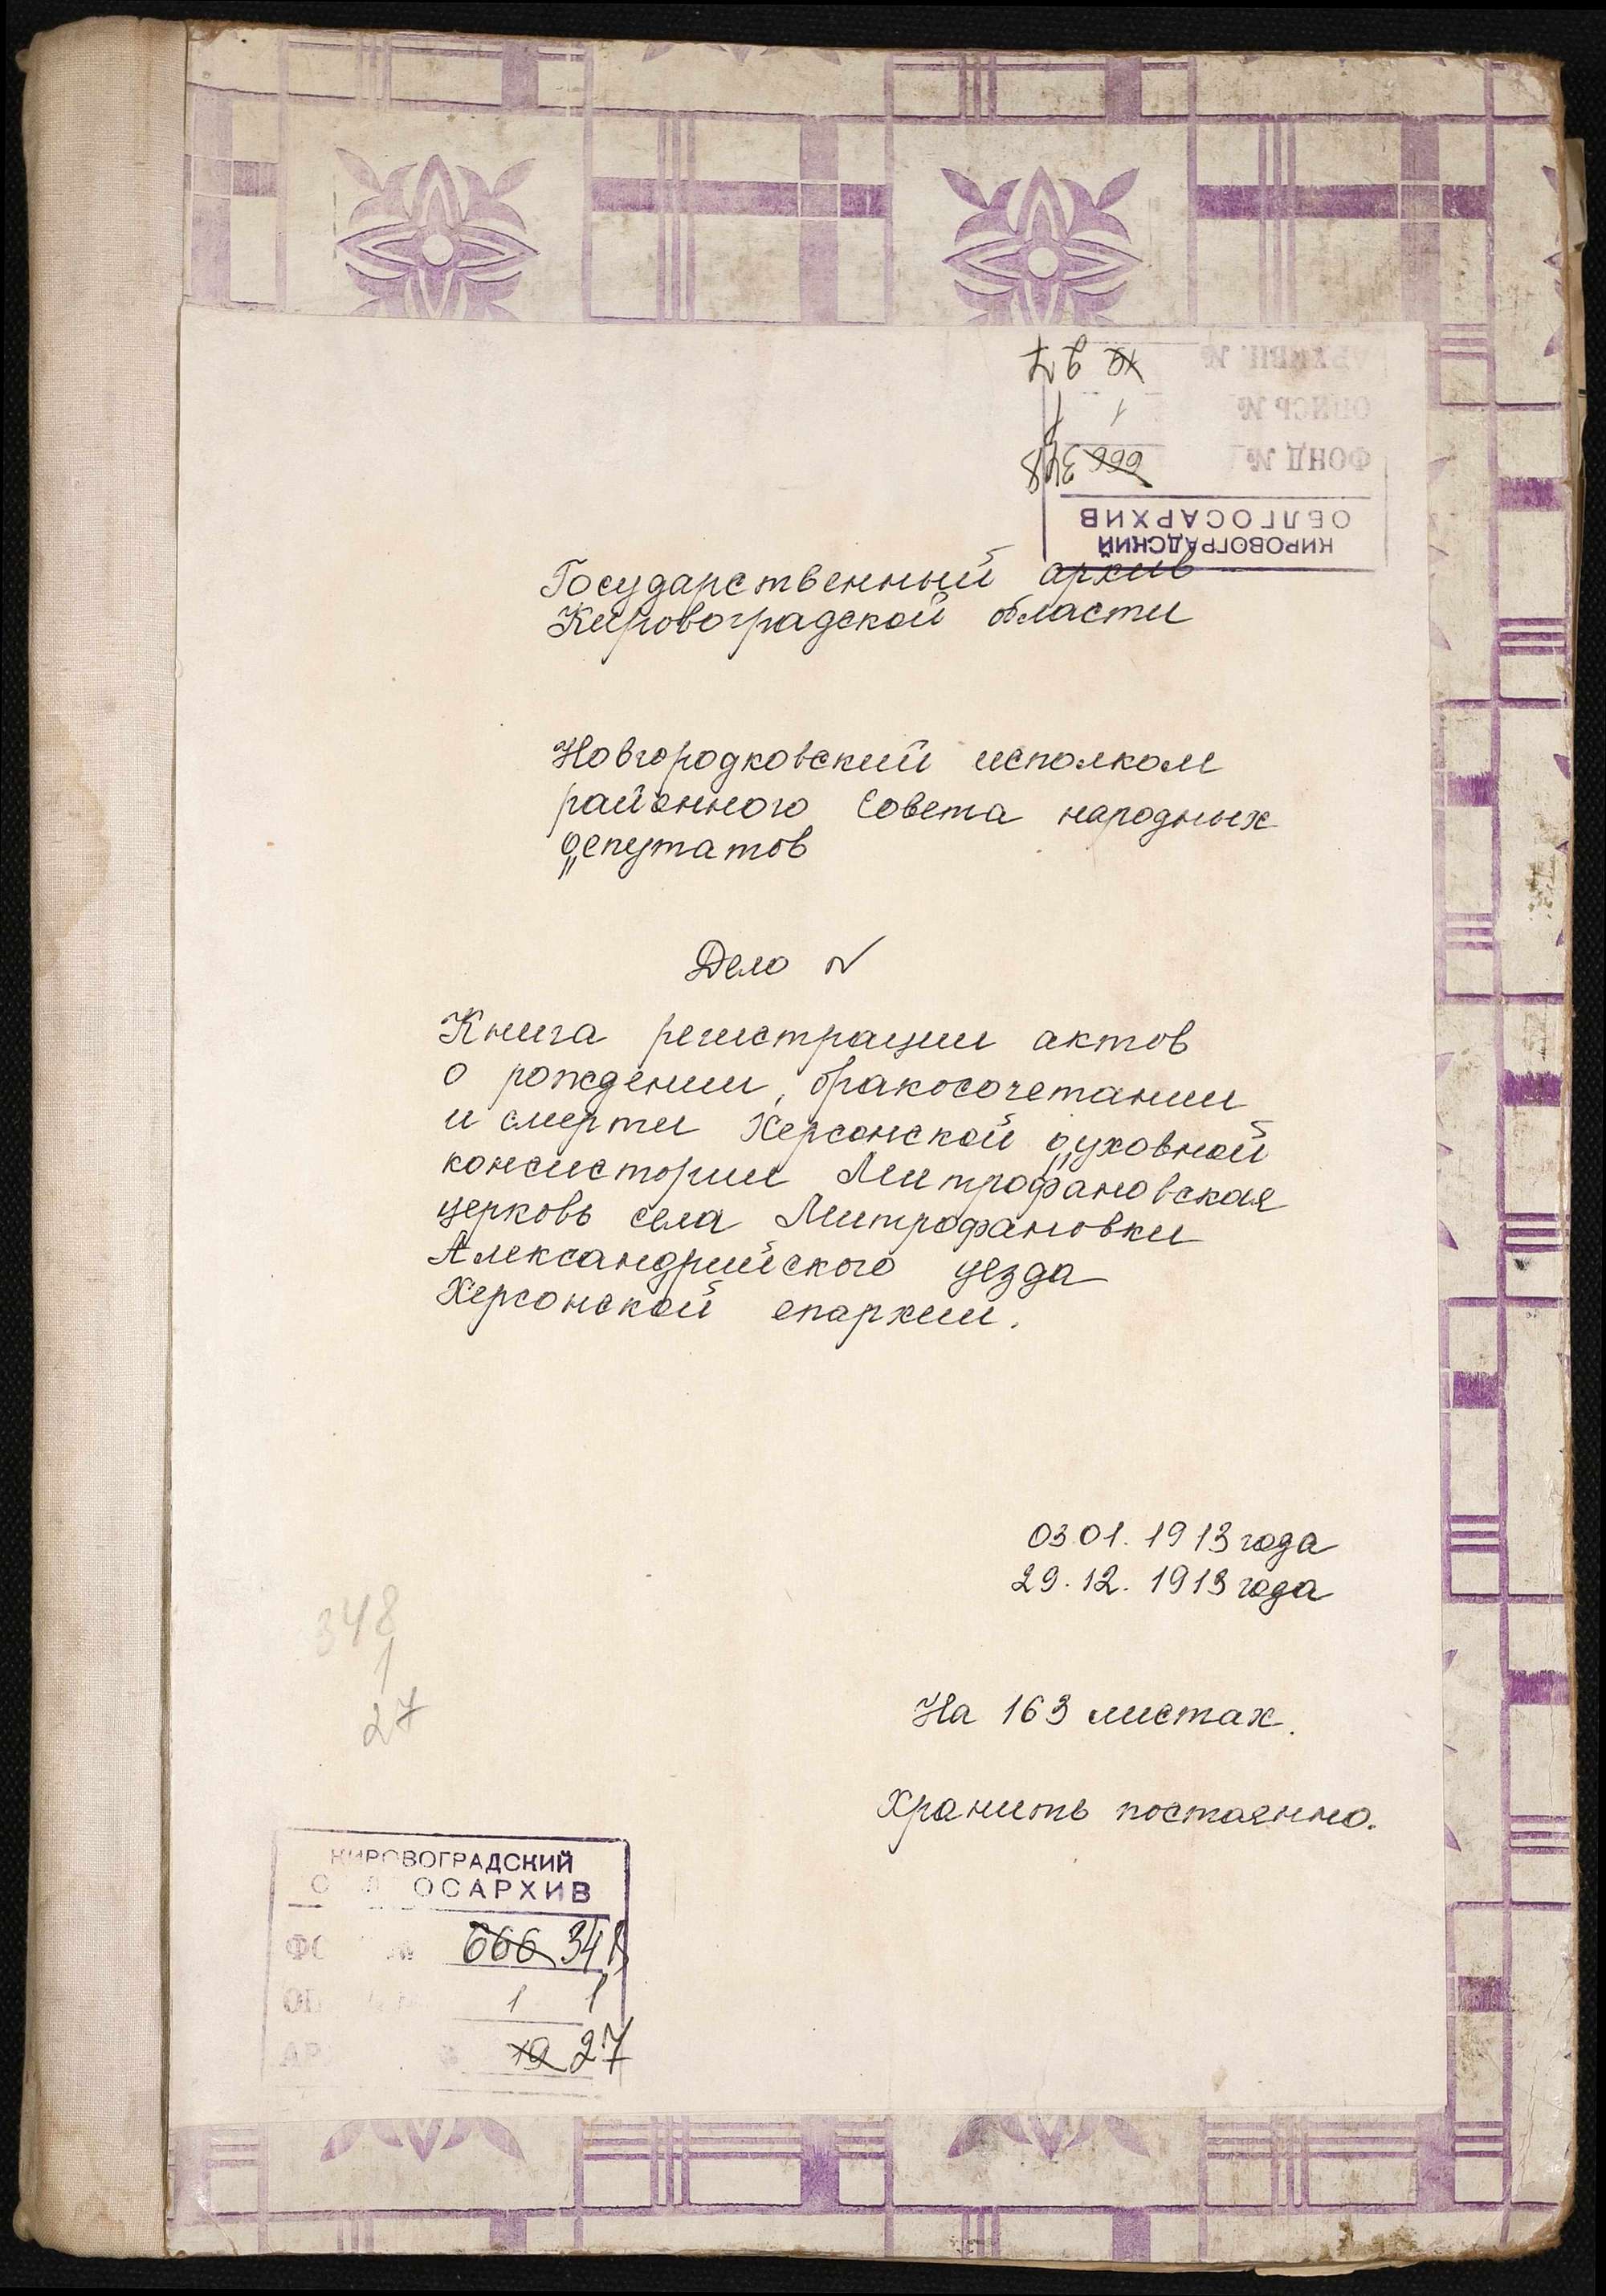 АРХИВН. №
19 27
ОПИСЬ №
1 1
ФОНД №
666 348
ОБЛГОСАРХИВ
КИРОВОГРАДСКИЙ
Государственный архив
Кировоградской области
Новгородковский исполком
районного Совета народных
депутатов
Дело №
Книга регистрации актов
о рождении, бракосочетании
и смерти Херсонской духовной
консистории Митрофановская
церковь села Митрофановки
Александрийского уезда
Херсонской епархии.
03.01.1913 года
29.12.1913 года
348
1
27
На 163 листах.
Хранить постоянно.
КИРОВОГРАДСКИЙ
ОСАРХИВ
666 348
1 1
19 27